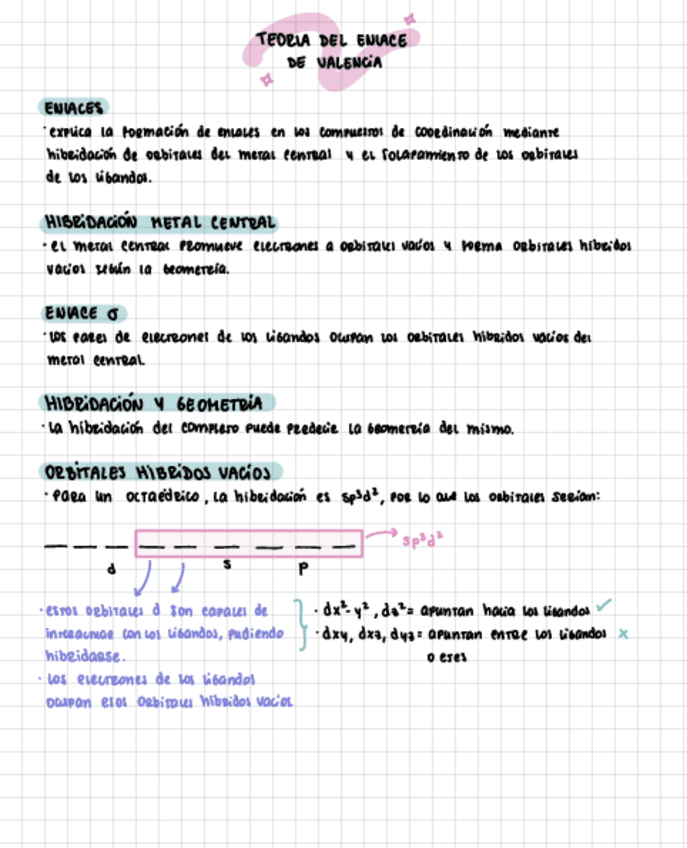 TEORIA DEL ENLACE
DE VALENCIA
ENLACES
· explica la formación de enlaces en los compuestos de coordinación mediante
hibridación de orbitales del metal central y el solapamiento de los orbitales
de los ligandos.
HIBRIDACIÓN METAL CENTRAL
· el metal central promueve electrones a orbitales vacíos y forma orbitales híbridos
vacíos según la geometría.
ENLACE σ
· los pares de electrones de los ligandos ocupan los orbitales híbridos vacíos del
metal central.
HIBRIDACIÓN Y GEOMETRÍA
· la hibridación del complejo puede predecir la geometría del mismo.
ORBITALES HÍBRIDOS VACÍOS
· Para un octaédrico, la hibridación es sp³d², por lo que los orbitales serían:
sp³d²
d s p
· estos orbitales d son capaces de
interactuar con los ligandos, pudiendo
hibridarse.
· los electrones de los ligandos
ocupan esos orbitales híbridos vacíos
· dx²-y², dz² = apuntan hacia los ligandos ✓
· dxy, dxz, dyz = apuntan entre los ligandos x
o ejes